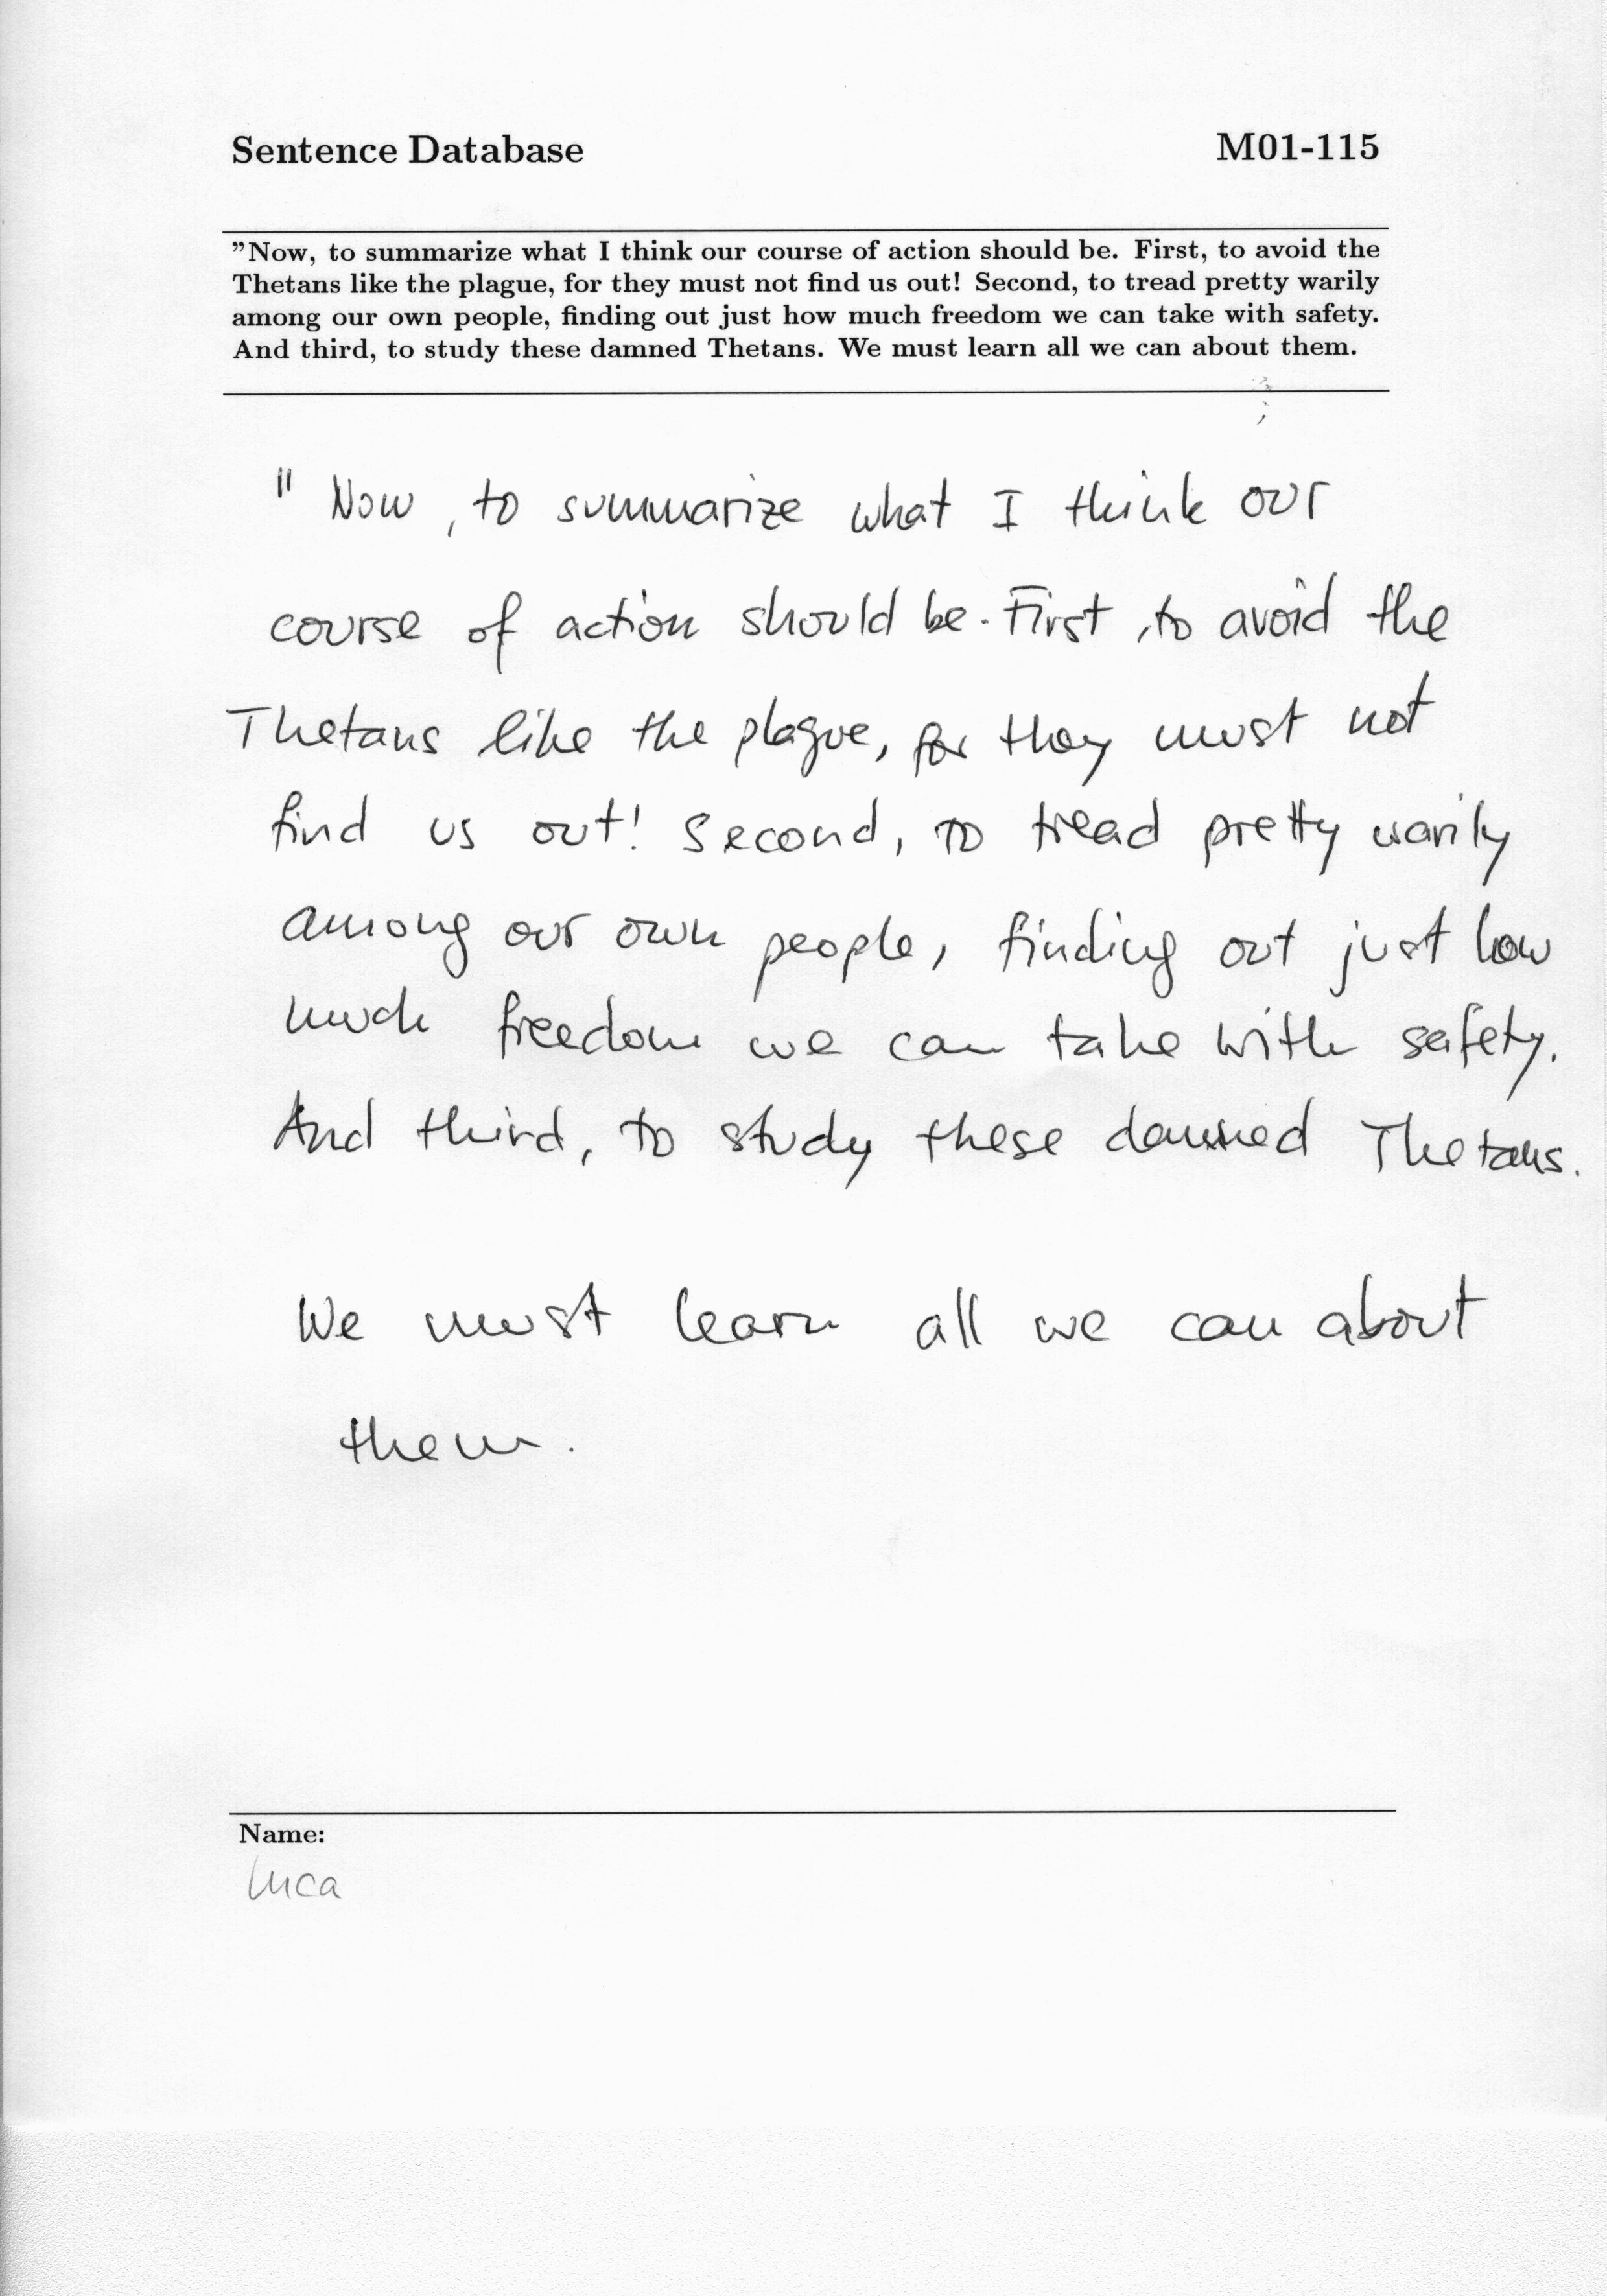 Sentence Database M01-115
"Now, to summarize what I think our course of action should be. First, to avoid the
Thetans like the plague, for they must not find us out! Second, to tread pretty warily
among our own people, finding out just how much freedom we can take with safety.
And third, to study these damned Thetans. We must learn all we can about them.
" Now, to summarize what I think our
course of action should be. First, to avoid the
Thetans like the plague, for they must not
find us out! Second, to tread pretty warily
among our own people, finding out just how
much freedom we can take with safety.
And third, to study these damned Thetans.
We must learn all we can about
them.
Name:
Luca